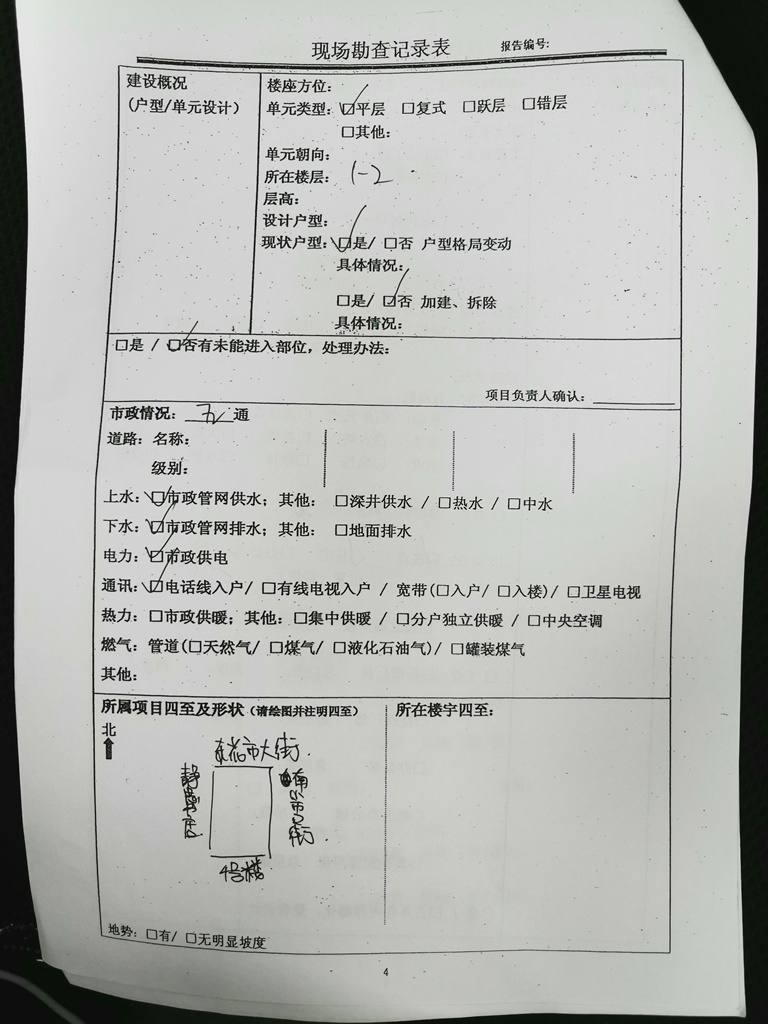 现场勘查记录表 报告编号:
建设概况
(户型/单元设计)
楼座方位:
单元类型: ☑平层 □复式 □跃层 □错层
□其他:
单元朝向:
所在楼层: 1-2
层高:
设计户型:
现状户型: ☑是/ □否 户型格局变动
具体情况:
□是/ ☑否 加建、拆除
具体情况:
□是 / ☑否有未能进入部位，处理办法:
项目负责人确认:
市政情况: 五 通
道路: 名称:
级别:
上水: ☑市政管网供水; 其他: □深井供水 / □热水 / □中水
下水: ☑市政管网排水; 其他: □地面排水
电力: ☑市政供电
通讯: ☑电话线入户/ □有线电视入户 / 宽带(□入户/ □入楼)/ □卫星电视
热力: □市政供暖; 其他: □集中供暖 / □分户独立供暖 / □中央空调
燃气: 管道(□天然气/ □煤气/ □液化石油气)/ □罐装煤气
其他:
所属项目四至及形状 (请绘图并注明四至)
北
东花市大街
4号楼
地势: □有/ □无明显坡度
所在楼宇四至:
4